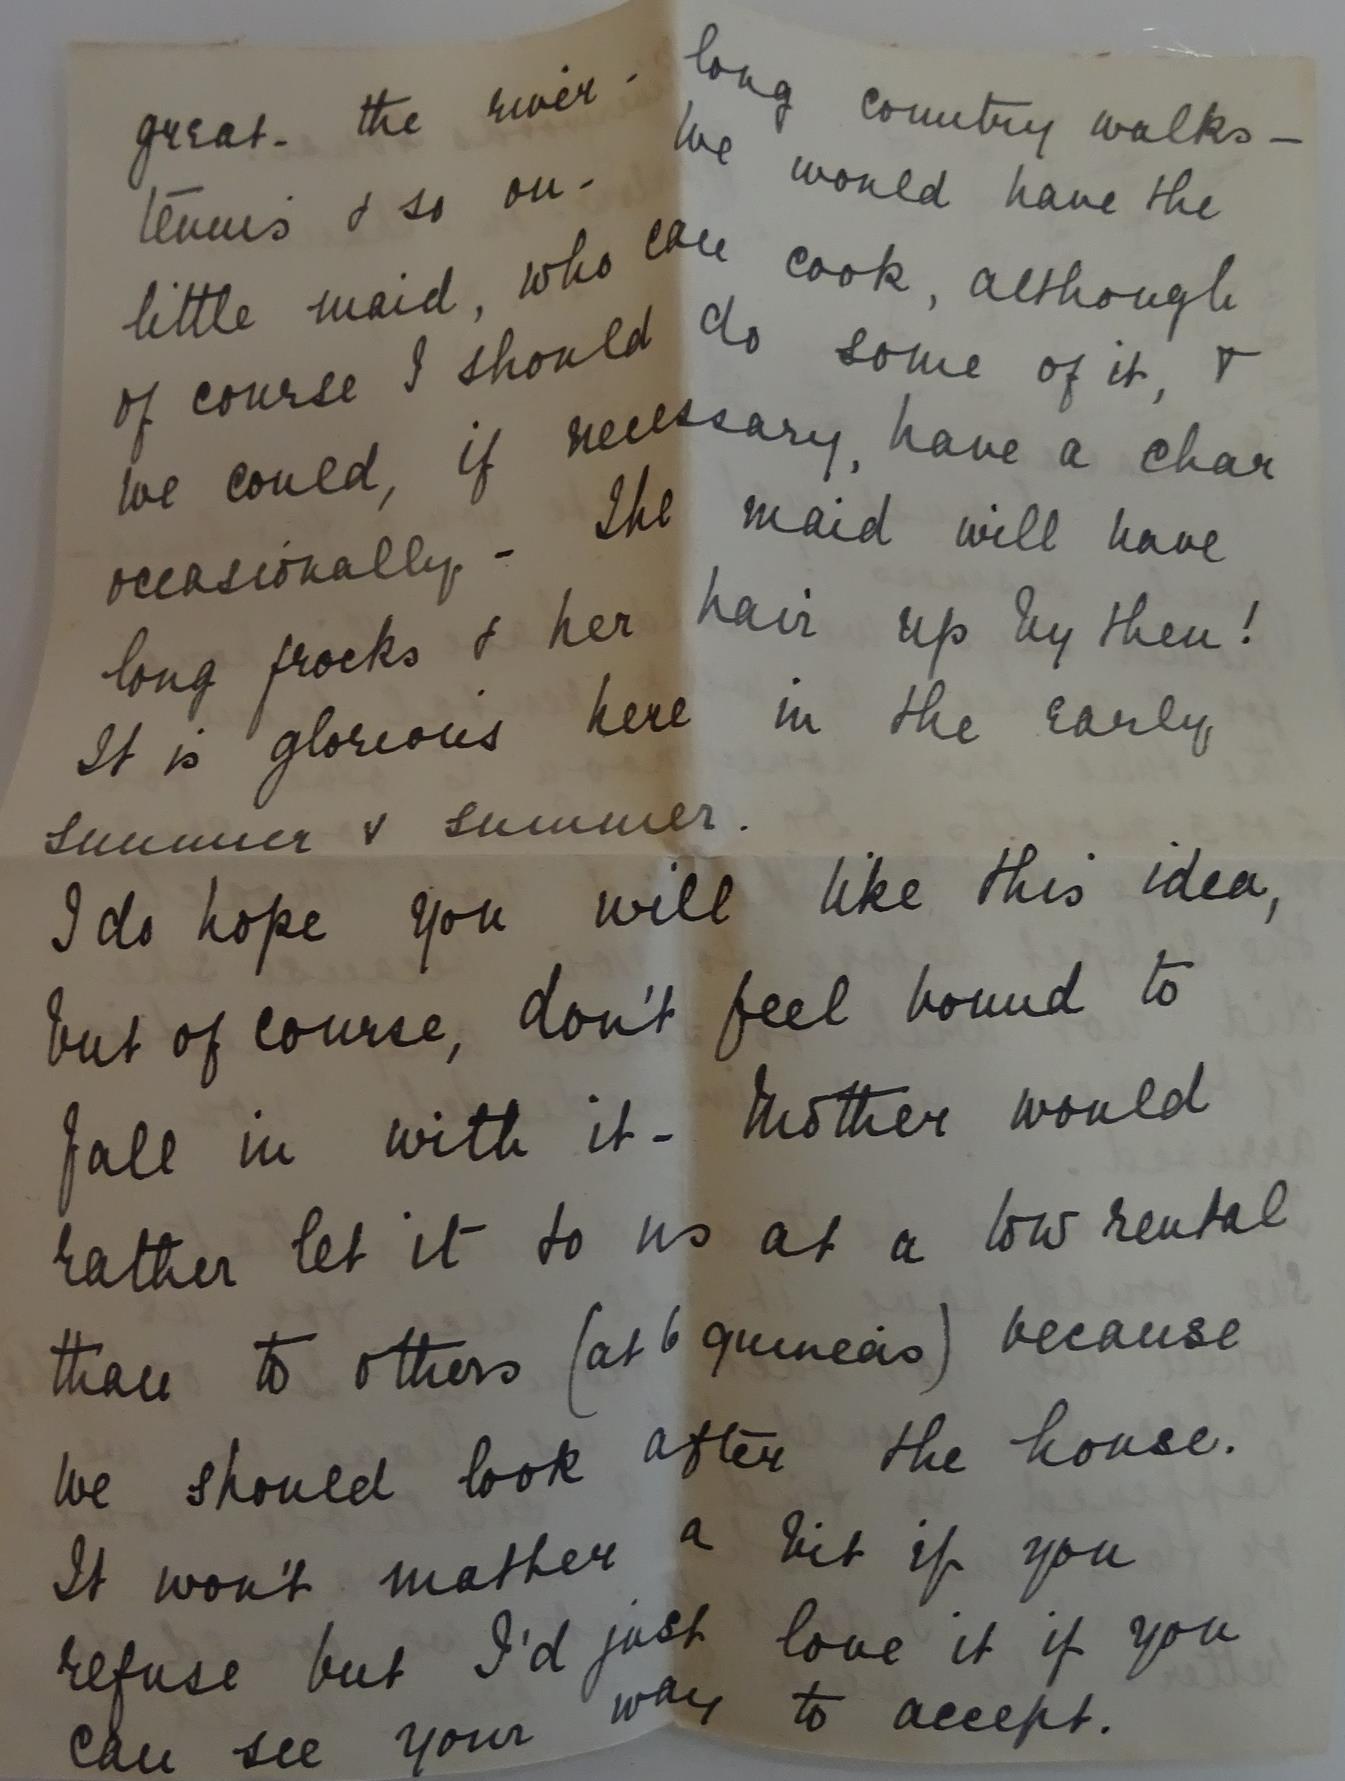 great - the river - long country walks -
tennis & so on - We would have the
little maid, who can cook, although
of course I should do some of it, &
we could, if necessary, have a char
occasionally - The maid will have
long frocks & her hair up by then!
It is glorious here in the early
summer & summer.
I do hope you will like this idea,
but of course, don't feel bound to
fall in with it - Mother would
rather let it to us at a low rental
than to others (at 6 guineas) because
we should look after the house.
It won't matter a bit if you
refuse but I'd just love it if you
can see your way to accept.